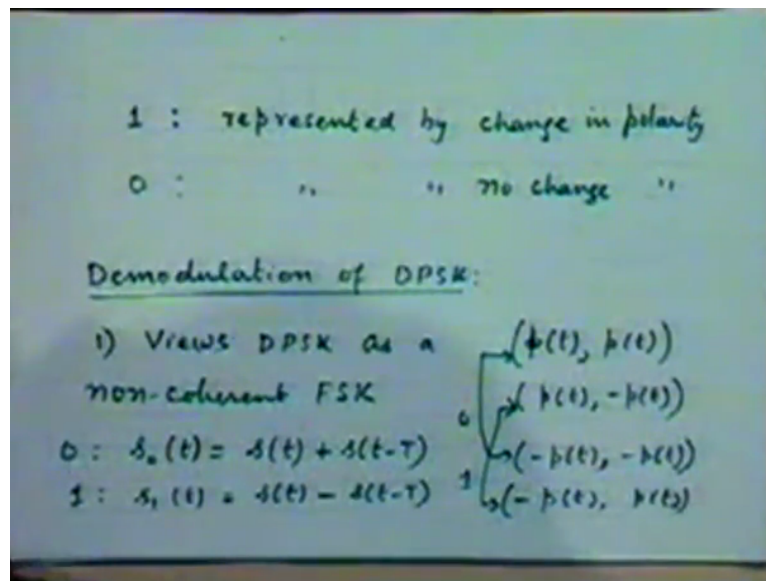 1 : represented by change in polarity
0 : " " no change "
Demodulation of DPSK:
1) Views DPSK as a
non-coherent FSK
0 : s₀(t) = s(t) + s(t-T)
1 : s₁(t) = s(t) - s(t-T)
(p(t), p(t))
(p(t), -p(t))
0
(-p(t), -p(t))
1
(-p(t), p(t))